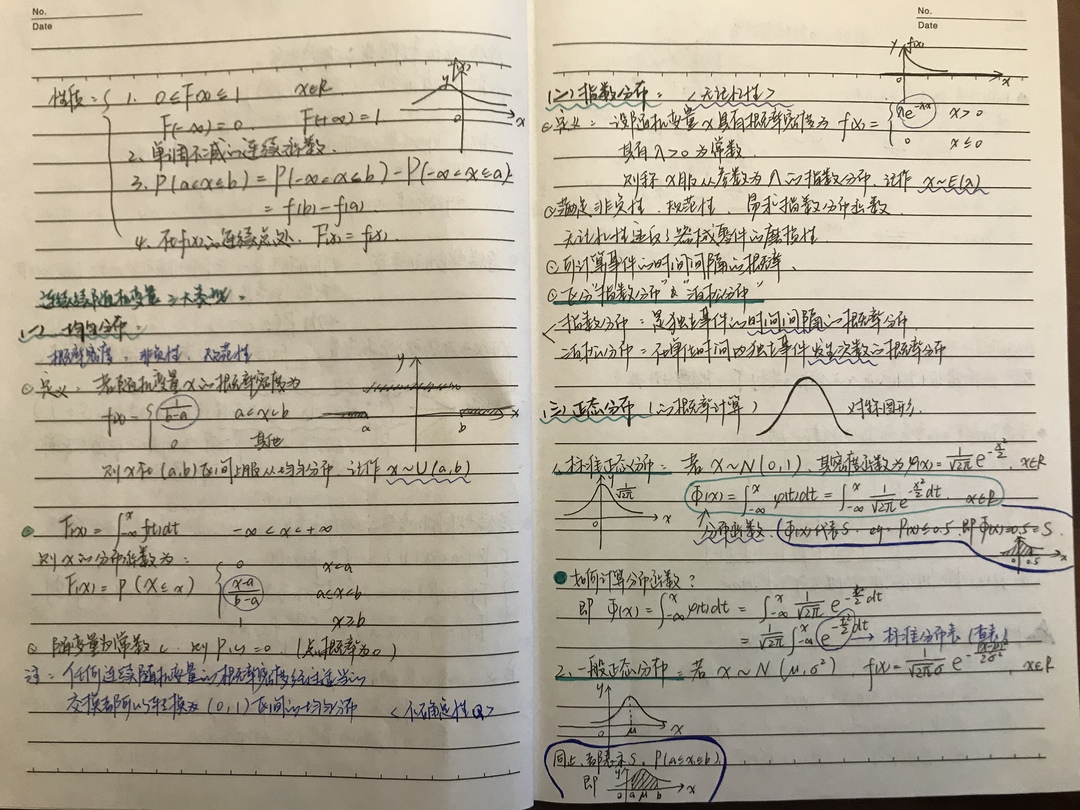 No.
Date
性质： 1. 0≤F(x)≤1 x∈R
F(-∞)=0. F(+∞)=1
2. 单调不减的连续函数.
3. P(a<x≤b) = P(-∞<x≤b) - P(-∞<x≤a).
= f(b) - f(a)
4. 在f(x)的连续点处, F'(x) = f(x).
连续随机变量三大类型.
(一) 均匀分布：
概率密度, 非负性, 规范性
定义： 若随机变量X的概率密度为
f(x) = { 1/(b-a) a<x<b
0 其他
则X在(a,b)区间上服从均匀分布, 记作 X~U(a,b)
F(x) = ∫_{-∞}^{x} f(t)dt -∞<x<+∞
则X的分布函数为：
F(x) = P(X≤x) { 0 x<a
(x-a)/(b-a) a≤x<b
1 x≥b
随变量为常数c, 则 P(x)=0 (点概率为0)
注： 任何连续随机变量的概率密度经过适当的
变换都可以转换为(0,1)区间的均匀分布 <不确定性Q>
y
x
a
b
No.
Date
(二) 指数分布： <无记忆性>
定义： 设随机变量X具有概率密度为 f(x) = { λe^{-λx} x>0
0 x≤0
其有λ>0为常数.
则称X服从参数为λ的指数分布, 记作 X~E(λ)
满足非负性, 规范性, 易求指数分布函数.
无记忆性违反了器械零件的磨损性.
可计算事件的时间间隔的概率.
区分“指数分布”&“泊松分布”
指数分布： 是独立事件的时间间隔的概率分布.
泊松分布： 在单位时间内独立事件发生次数的概率分布
(三) 正态分布 (的概率计算) 对称图形.
1. 标准正态分布： 若 X~N(0,1), 其密度函数为 φ(x) = 1/√2π e^{-x²/2}, x∈R
Φ(x) = ∫_{-∞}^{x} φ(t)dt = ∫_{-∞}^{x} 1/√2π e^{-x²/2} dt. x∈R
分布函数. (Φ(x)代表S. eg: P(x)≤0.5, 即Φ(x)=0.5=S.
如何计算分布函数?
即 Φ(x) = ∫_{-∞}^{x} φ(t)dt = ∫_{-∞}^{x} 1/√2π e^{-x²/2} dt
= 1/√2π ∫_{-∞}^{x} e^{-x²/2} dt → 标准分布表 (查表)
2. 一般正态分布： 若 X~N(μ,σ²) f(x) = 1/(√2π σ) e^{-(x-μ)²/2σ²}, x∈R
同上, 都表示S, P(a≤x≤b).
即
y
0 a μ b x